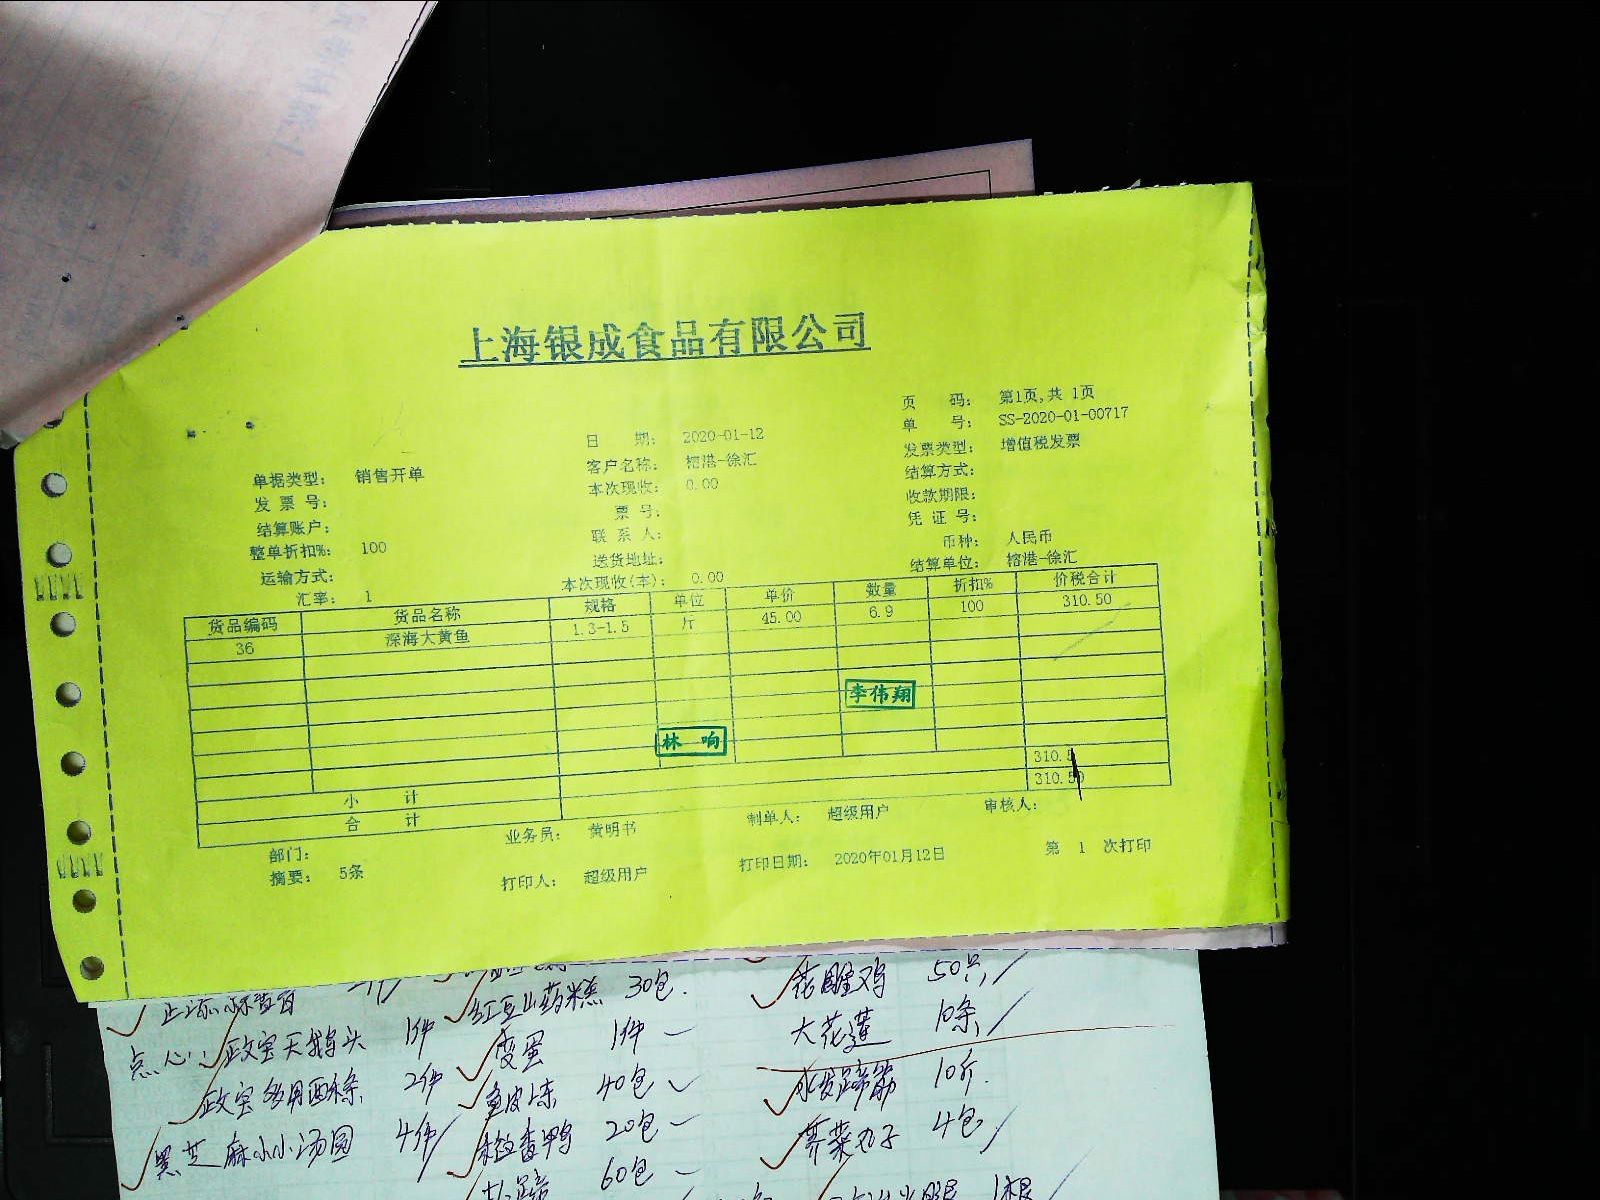 上海银成食品有限公司
页 码： 第1页,共 1页
日 期： 2020-01-12 单 号： SS-2020-01-00717
单据类型： 销售开单 客户名称： 榕港-徐汇 发票类型： 增值税发票
发 票 号： 本次现收： 0.00 结算方式：
结算账户： 票 号： 收款期限：
整单折扣%： 100 联 系 人： 凭 证 号：
运输方式： 送货地址： 币种： 人民币
汇率： 1 本次现收(本)： 0.00 结算单位： 榕港-徐汇
货品编码 货品名称 规格 单位 单价 数量 折扣% 价税合计
36 深海大黄鱼 1.3-1.5 斤 45.00 6.9 100 310.50
李伟翔
林 响
小 计 310.5
合 计 310.50
部门： 业务员： 黄明书 制单人： 超级用户 审核人：
摘要： 5条 打印人： 超级用户 打印日期： 2020年01月12日 第 1 次打印
红豆山药糕 30包 花雕鸡 50只
点心： 政宝天鹅头 1件 变蛋 1件 大花莲 10条
2件 鱼皮冻 40包 水发蹄筋 10斤
黑芝麻小小汤圆 4件 20包 荠菜丸子 4包
60包 1根